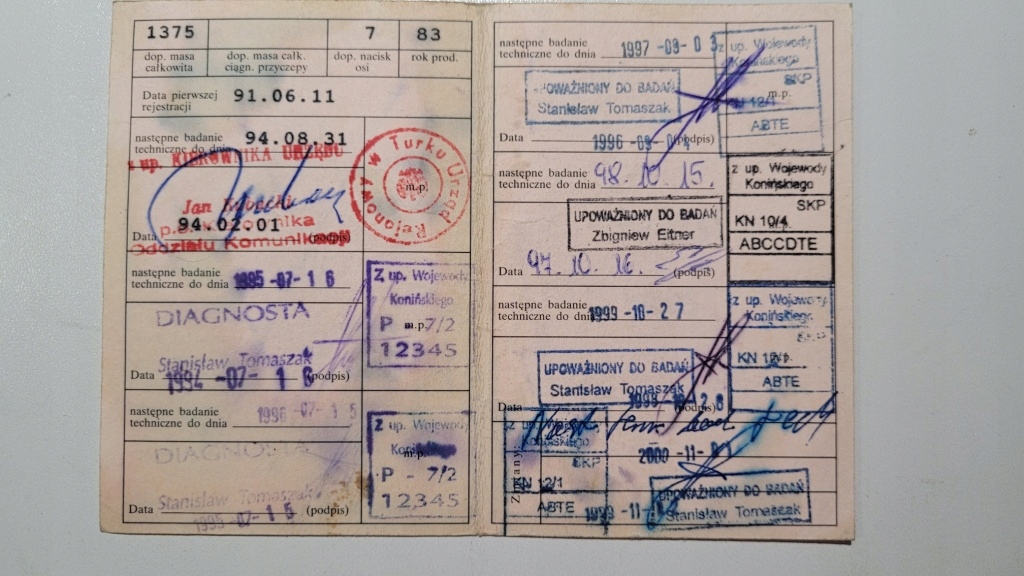 1375 7 83
dop. masa całkowita dop. masa całk. ciągn. przyczepy dop. nacisk osi rok prod.
Data pierwszej rejestracji 91.06.11
następne badanie techniczne do dnia 94.08.31
z up. KIEROWNIKA URZĘDU
Urząd Rejonowy w Turku
m.p.
Jan
94.02.01
Data (podpis)
Oddziału Komunikacji
następne badanie techniczne do dnia 1995-07-16
Z up. Wojewody
Konińskiego
P - 7/2
m.p.
12345
DIAGNOSTA
Stanisław Tomaszak
Data 1994-07-16 (podpis)
następne badanie techniczne do dnia 1996-07-15
Z up. Wojewody
m.p.
P - 7/2
12345
DIAGNOSTA
Stanisław Tomaszak
Data 1995-07-15 (podpis)
następne badanie techniczne do dnia 1997-09-03
z up. Wojewody
Konińskiego
SKP
m.p.
KN 12/1
ABTE
UPOWAŻNIONY DO BADAŃ
Stanisław Tomaszak
Data 1996-09- (podpis)
następne badanie techniczne do dnia 98.10.15.
z up. Wojewody
Konińskiego
SKP
KN 10/4
ABCCDTE
UPOWAŻNIONY DO BADAŃ
Zbigniew Eitner
Data 97.10.16. (podpis)
następne badanie techniczne do dnia 1999-10-27
z up. Wojewody
Konińskiego
SKP
KN 12/1
ABTE
UPOWAŻNIONY DO BADAŃ
Stanisław Tomaszak
Data 1998-10-28 (podpis)
Zmiany:
Konińskiego
SKP
2000-11-
KN 12/1
ABTE
1999-11-
UPOWAŻNIONY DO BADAŃ
Stanisław Tomaszak